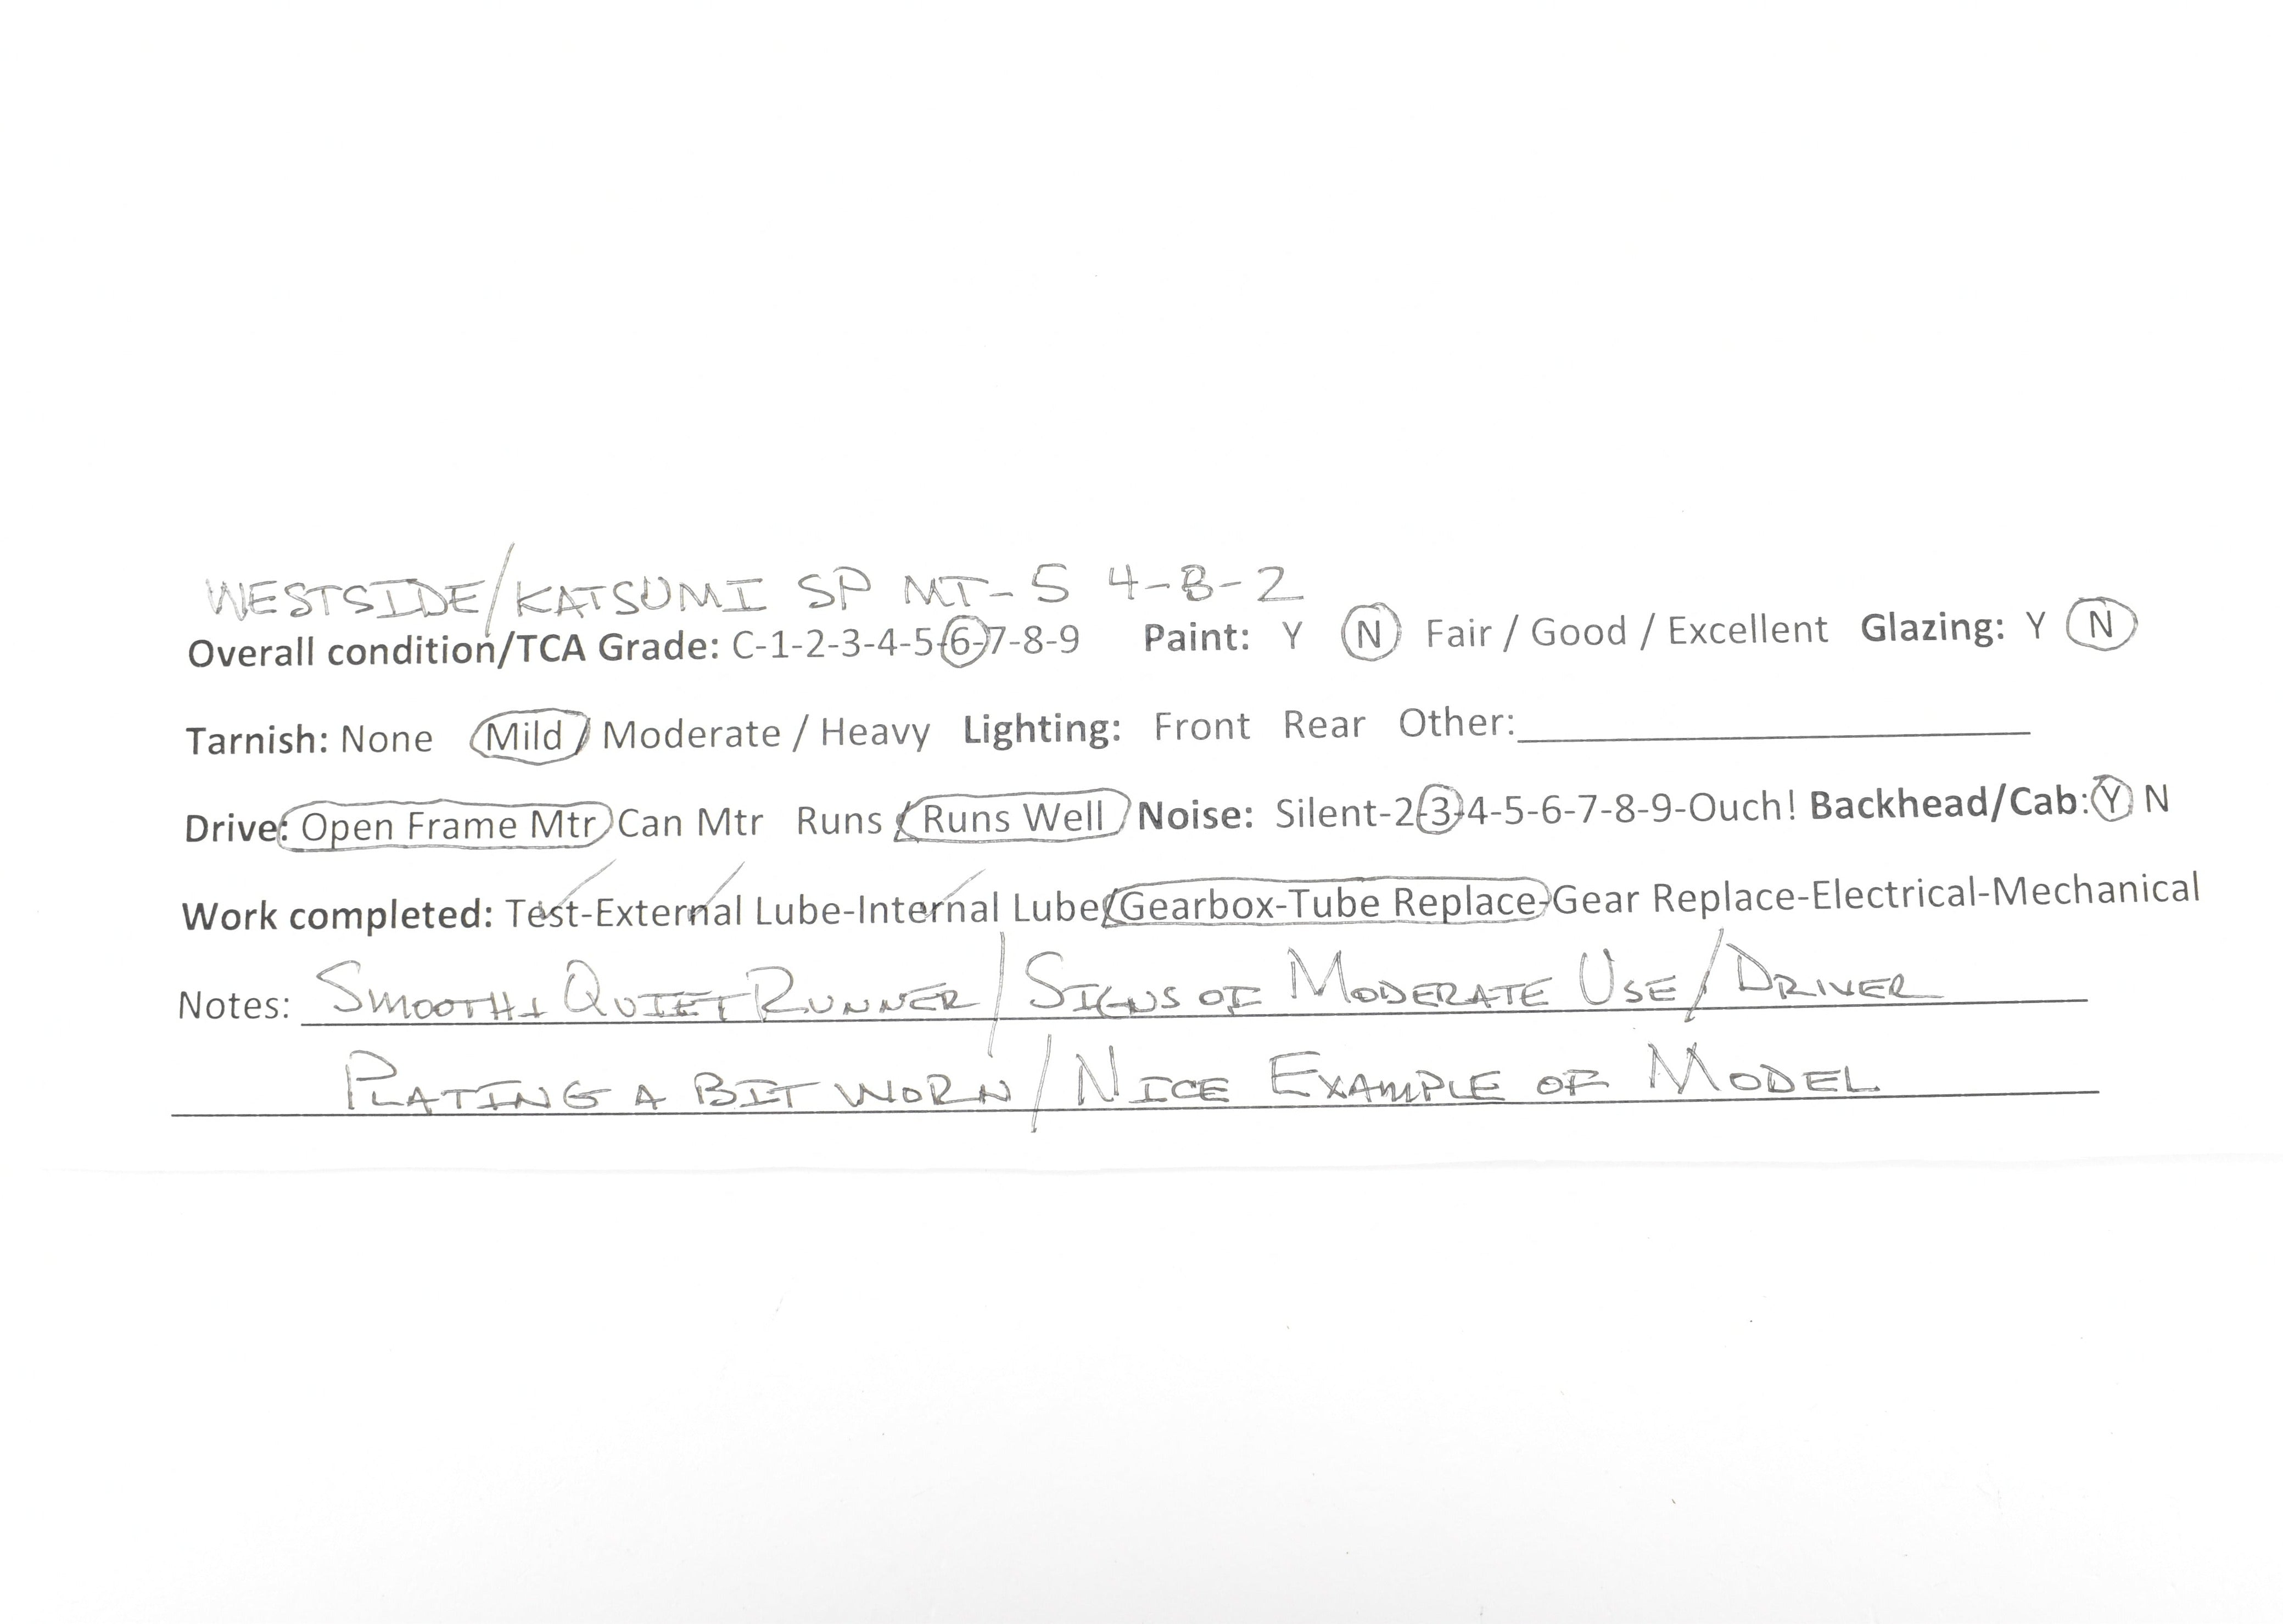 WESTSIDE/KATSUMI SP MT-5 4-8-2
Overall condition/TCA Grade: C-1-2-3-4-5-6-7-8-9 Paint: Y N Fair / Good / Excellent Glazing: Y N
Tarnish: None Mild / Moderate / Heavy Lighting: Front Rear Other:
Drive: Open Frame Mtr Can Mtr Runs / Runs Well Noise: Silent-2-3-4-5-6-7-8-9-Ouch! Backhead/Cab: Y N
Work completed: Test-External Lube-Internal Lube-Gearbox-Tube Replace-Gear Replace-Electrical-Mechanical
Notes: SMOOTH + QUIET RUNNER / SIGNS OF MODERATE USE / DRIVER
PLATING A BIT WORN / NICE EXAMPLE OF MODEL